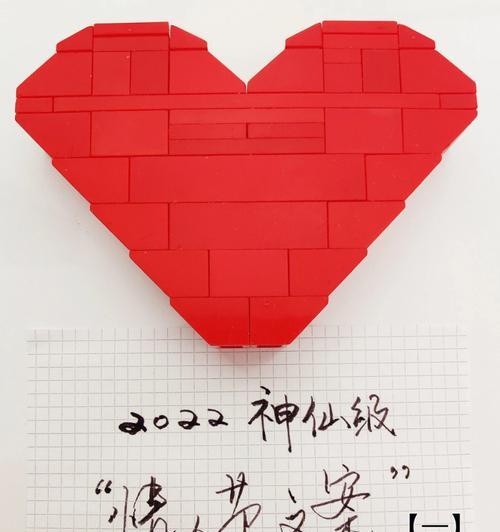 2022 神仙级
“情人节文案”
【一】